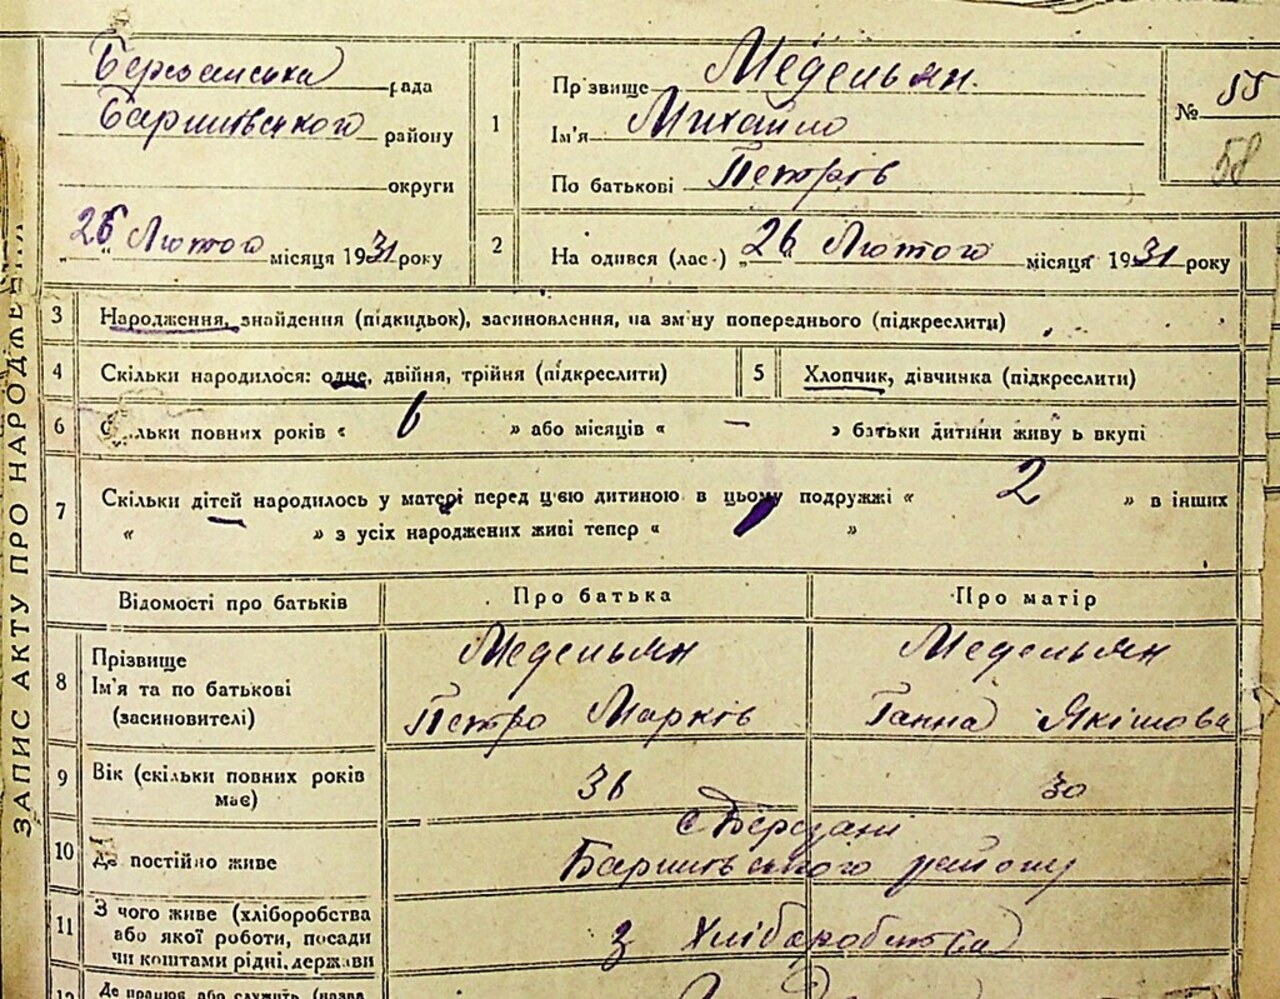 ЗАПИС АКТУ ПРО НАРОДЖЕННЯ
Березанська рада
Баришівського району
округи
„26“ Лютого місяця 1931 року
1
Прізвище Медельян.
Ім'я Михайло
По батькові Петрів
№ 55
58
2
На одився (лас ) „26“ Лютого місяця 1931 року
3 Народження, знайдення (підкидьок), засиновлення, на зміну попереднього (підкреслити)
4 Скільки народилося: одне, двійня, трійня (підкреслити)
5 Хлопчик, дівчинка (підкреслити)
6 Скільки повних років « 6 » або місяців « — » батьки дитини живу ь вкупі
7 Скільки дітей народилось у матері перед ц'єю дитиною в цьому подружжі « 2 » в інших
« — » з усіх народжених живі тепер « »
Відомості про батьків
Про батька
Про матір
8 Прізвище
Ім'я та по батькові
(засиновителі)
Медельян
Петро Марків
Медельян
Ганна Якімова
9 Вік (скільки повних років
має)
36
30
10 Де постійно живе
с Березані
Баришівського району
11 З чого живе (хліборобства
або якої роботи, посади
чи коштами рідні, держави
з Хліборобства
12 Де працює або служить (назва